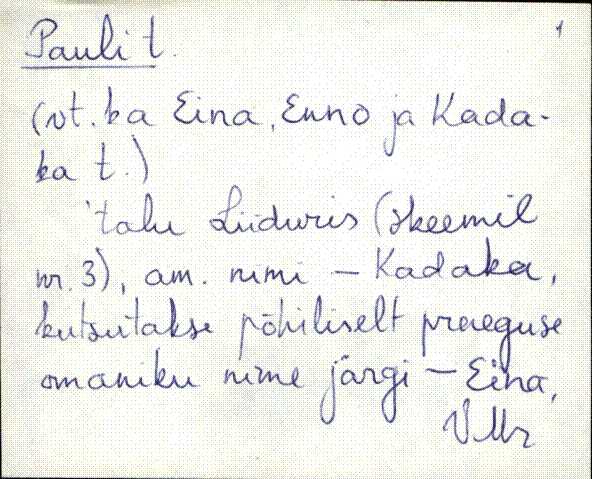 1
Pauli t.
(vt. ka Eina, Enno ja Kada-
ka t.)
'talu Liiduris (skeemil
nr. 3), am. nimi – Kadaka,
kutsutakse põhiliselt praeguse
omaniku nime järgi – Eina,
VMr